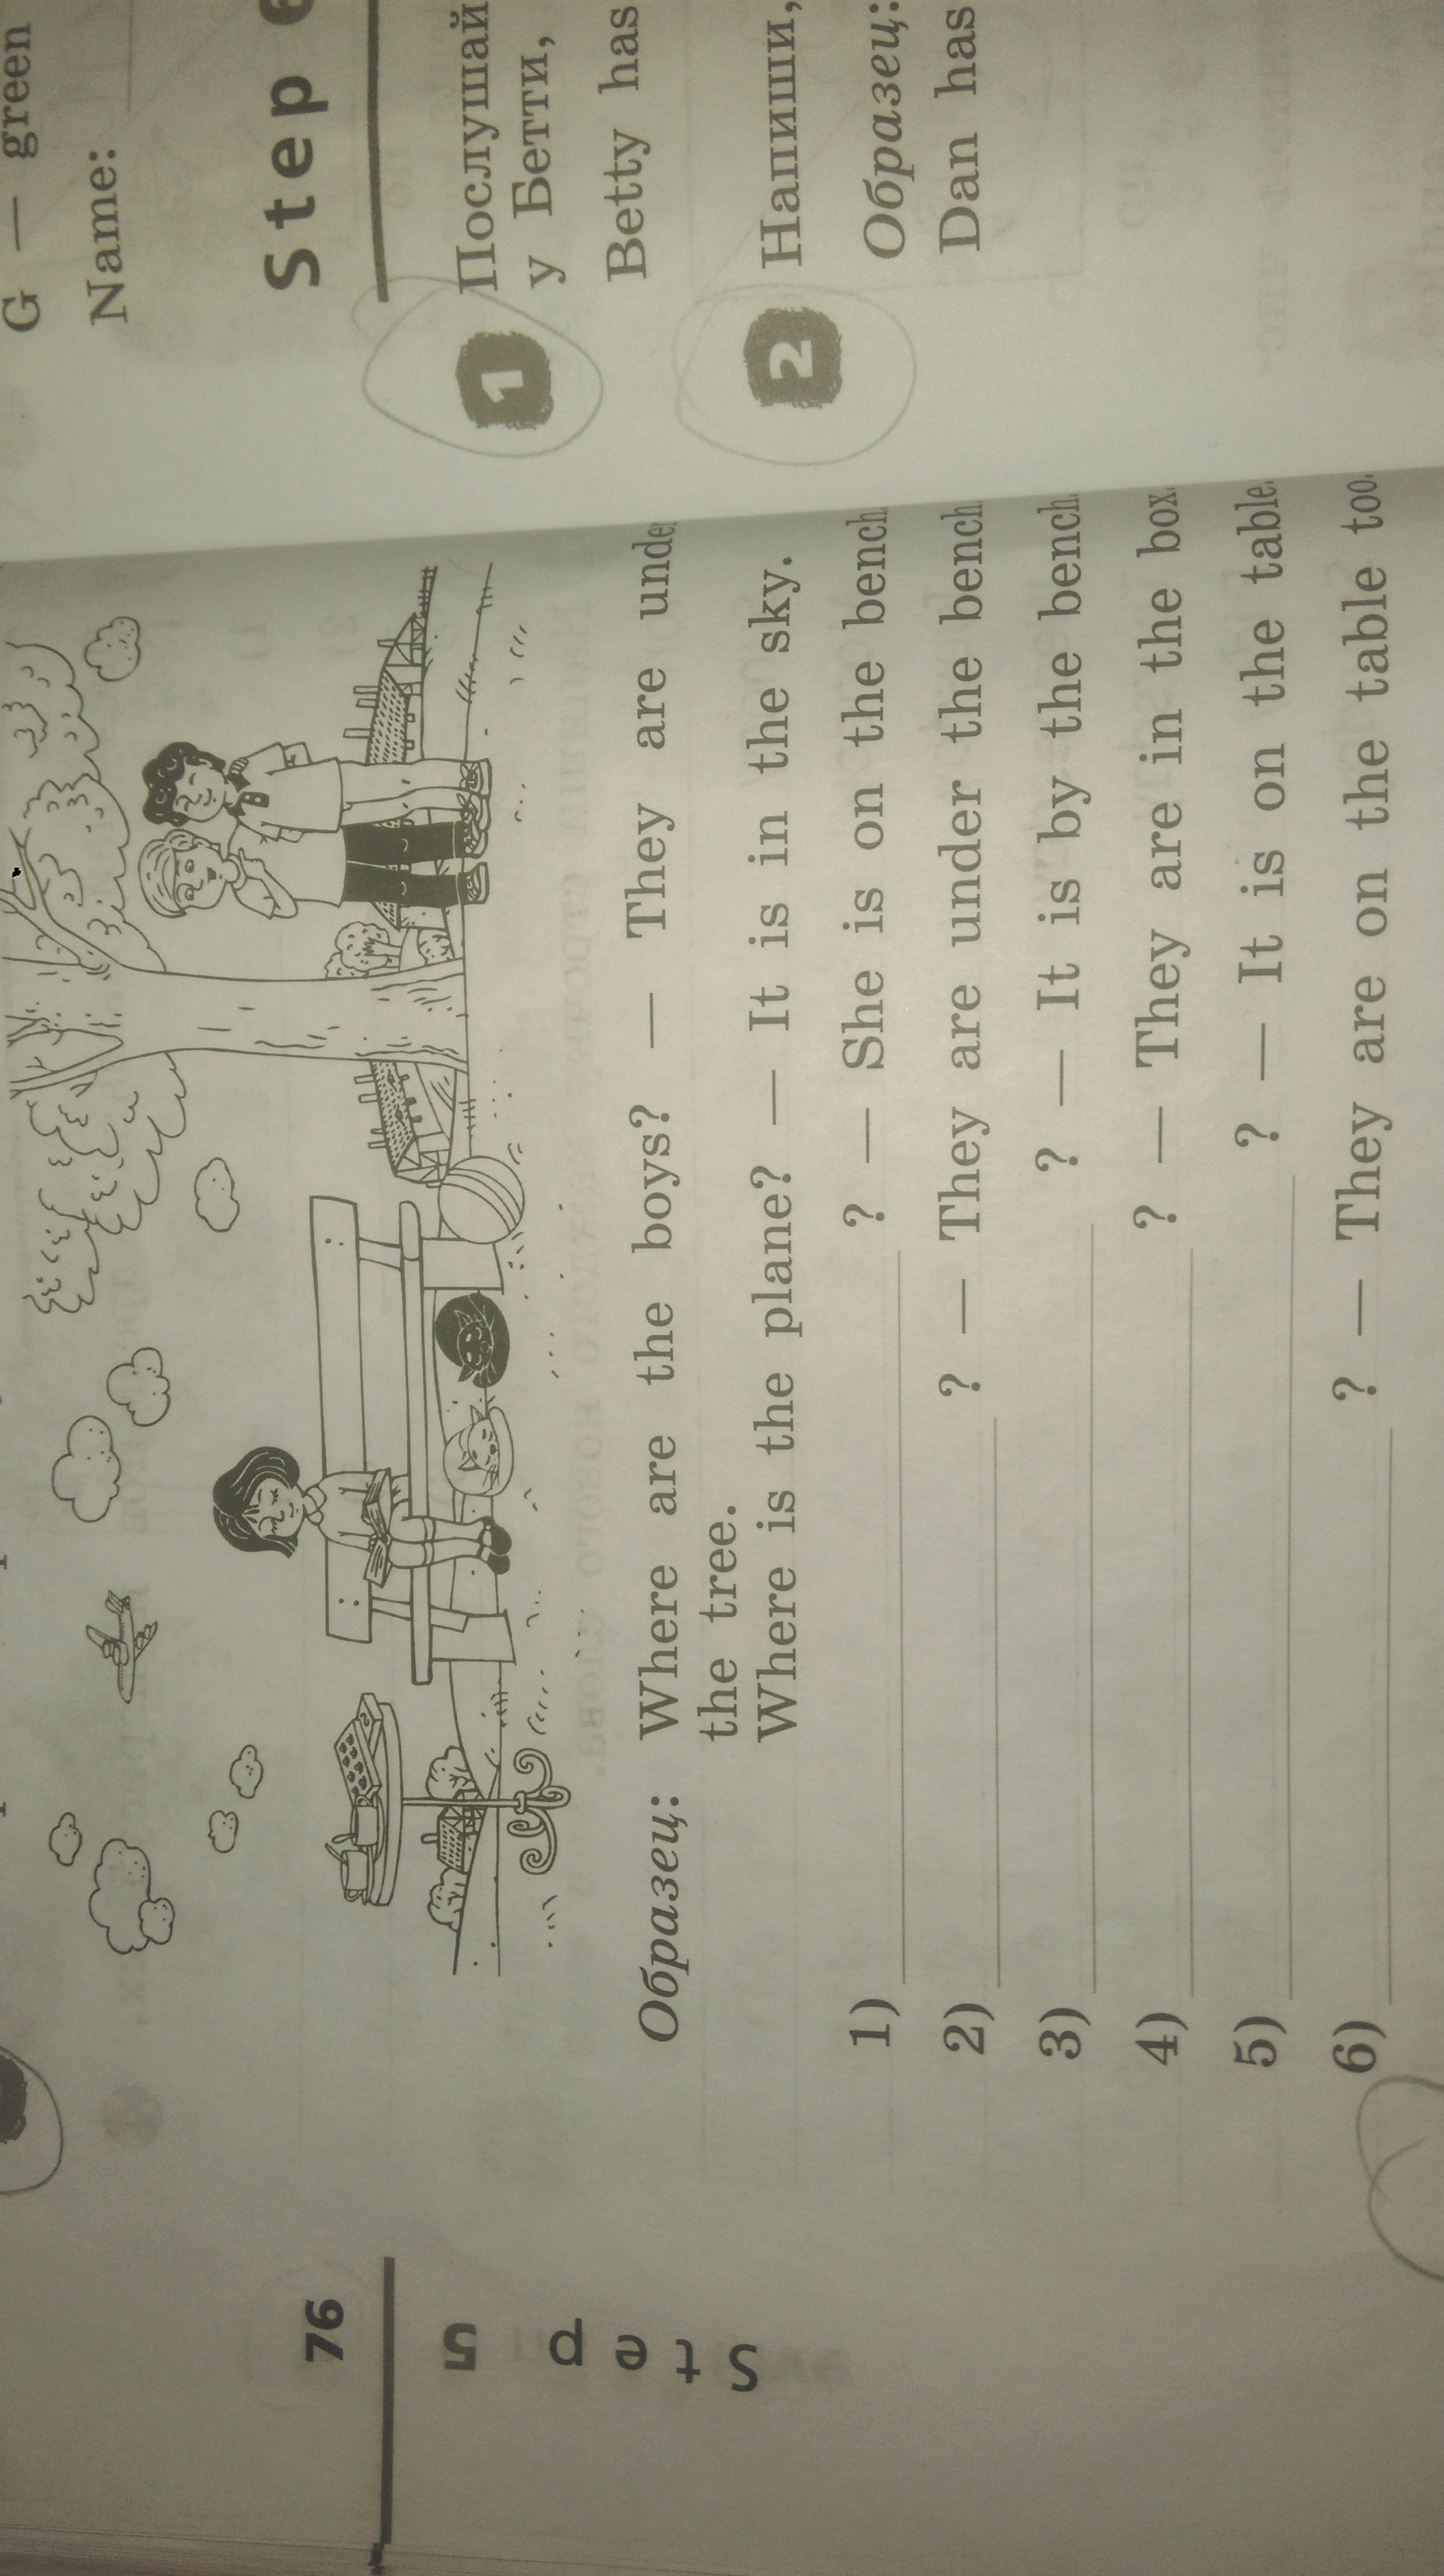 76
Step 5
Образец: Where are the boys? — They are under
the tree.
Where is the plane? — It is in the sky.
1) ? — She is on the bench.
2) ? — They are under the bench.
3) ? — It is by the bench.
4) ? — They are in the box.
5) ? — It is on the table.
6) ? — They are on the table too.
G — green
Name:
Step 6
1 Послушай
у Бетти,
Betty has
2 Напиши,
Образец:
Dan has